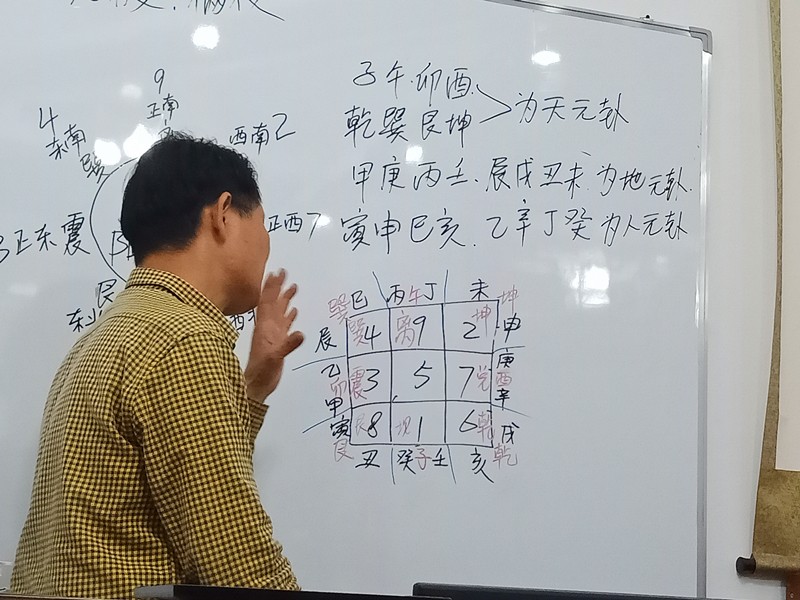 9
正南
4
东南
巽
西南2
正东震
正西7
艮
子午.卯酉.
乾巽艮坤
为天元卦
甲庚丙壬.辰戌丑未.为地元卦.
寅申巳亥.乙辛丁癸为人元卦
巽巳 丙午丁 未坤
辰 巽4 离9 2坤 申
乙卯甲 震3 5 7兑 庚酉辛
寅艮 8 坎1 6乾 戌乾
丑 癸子壬 亥